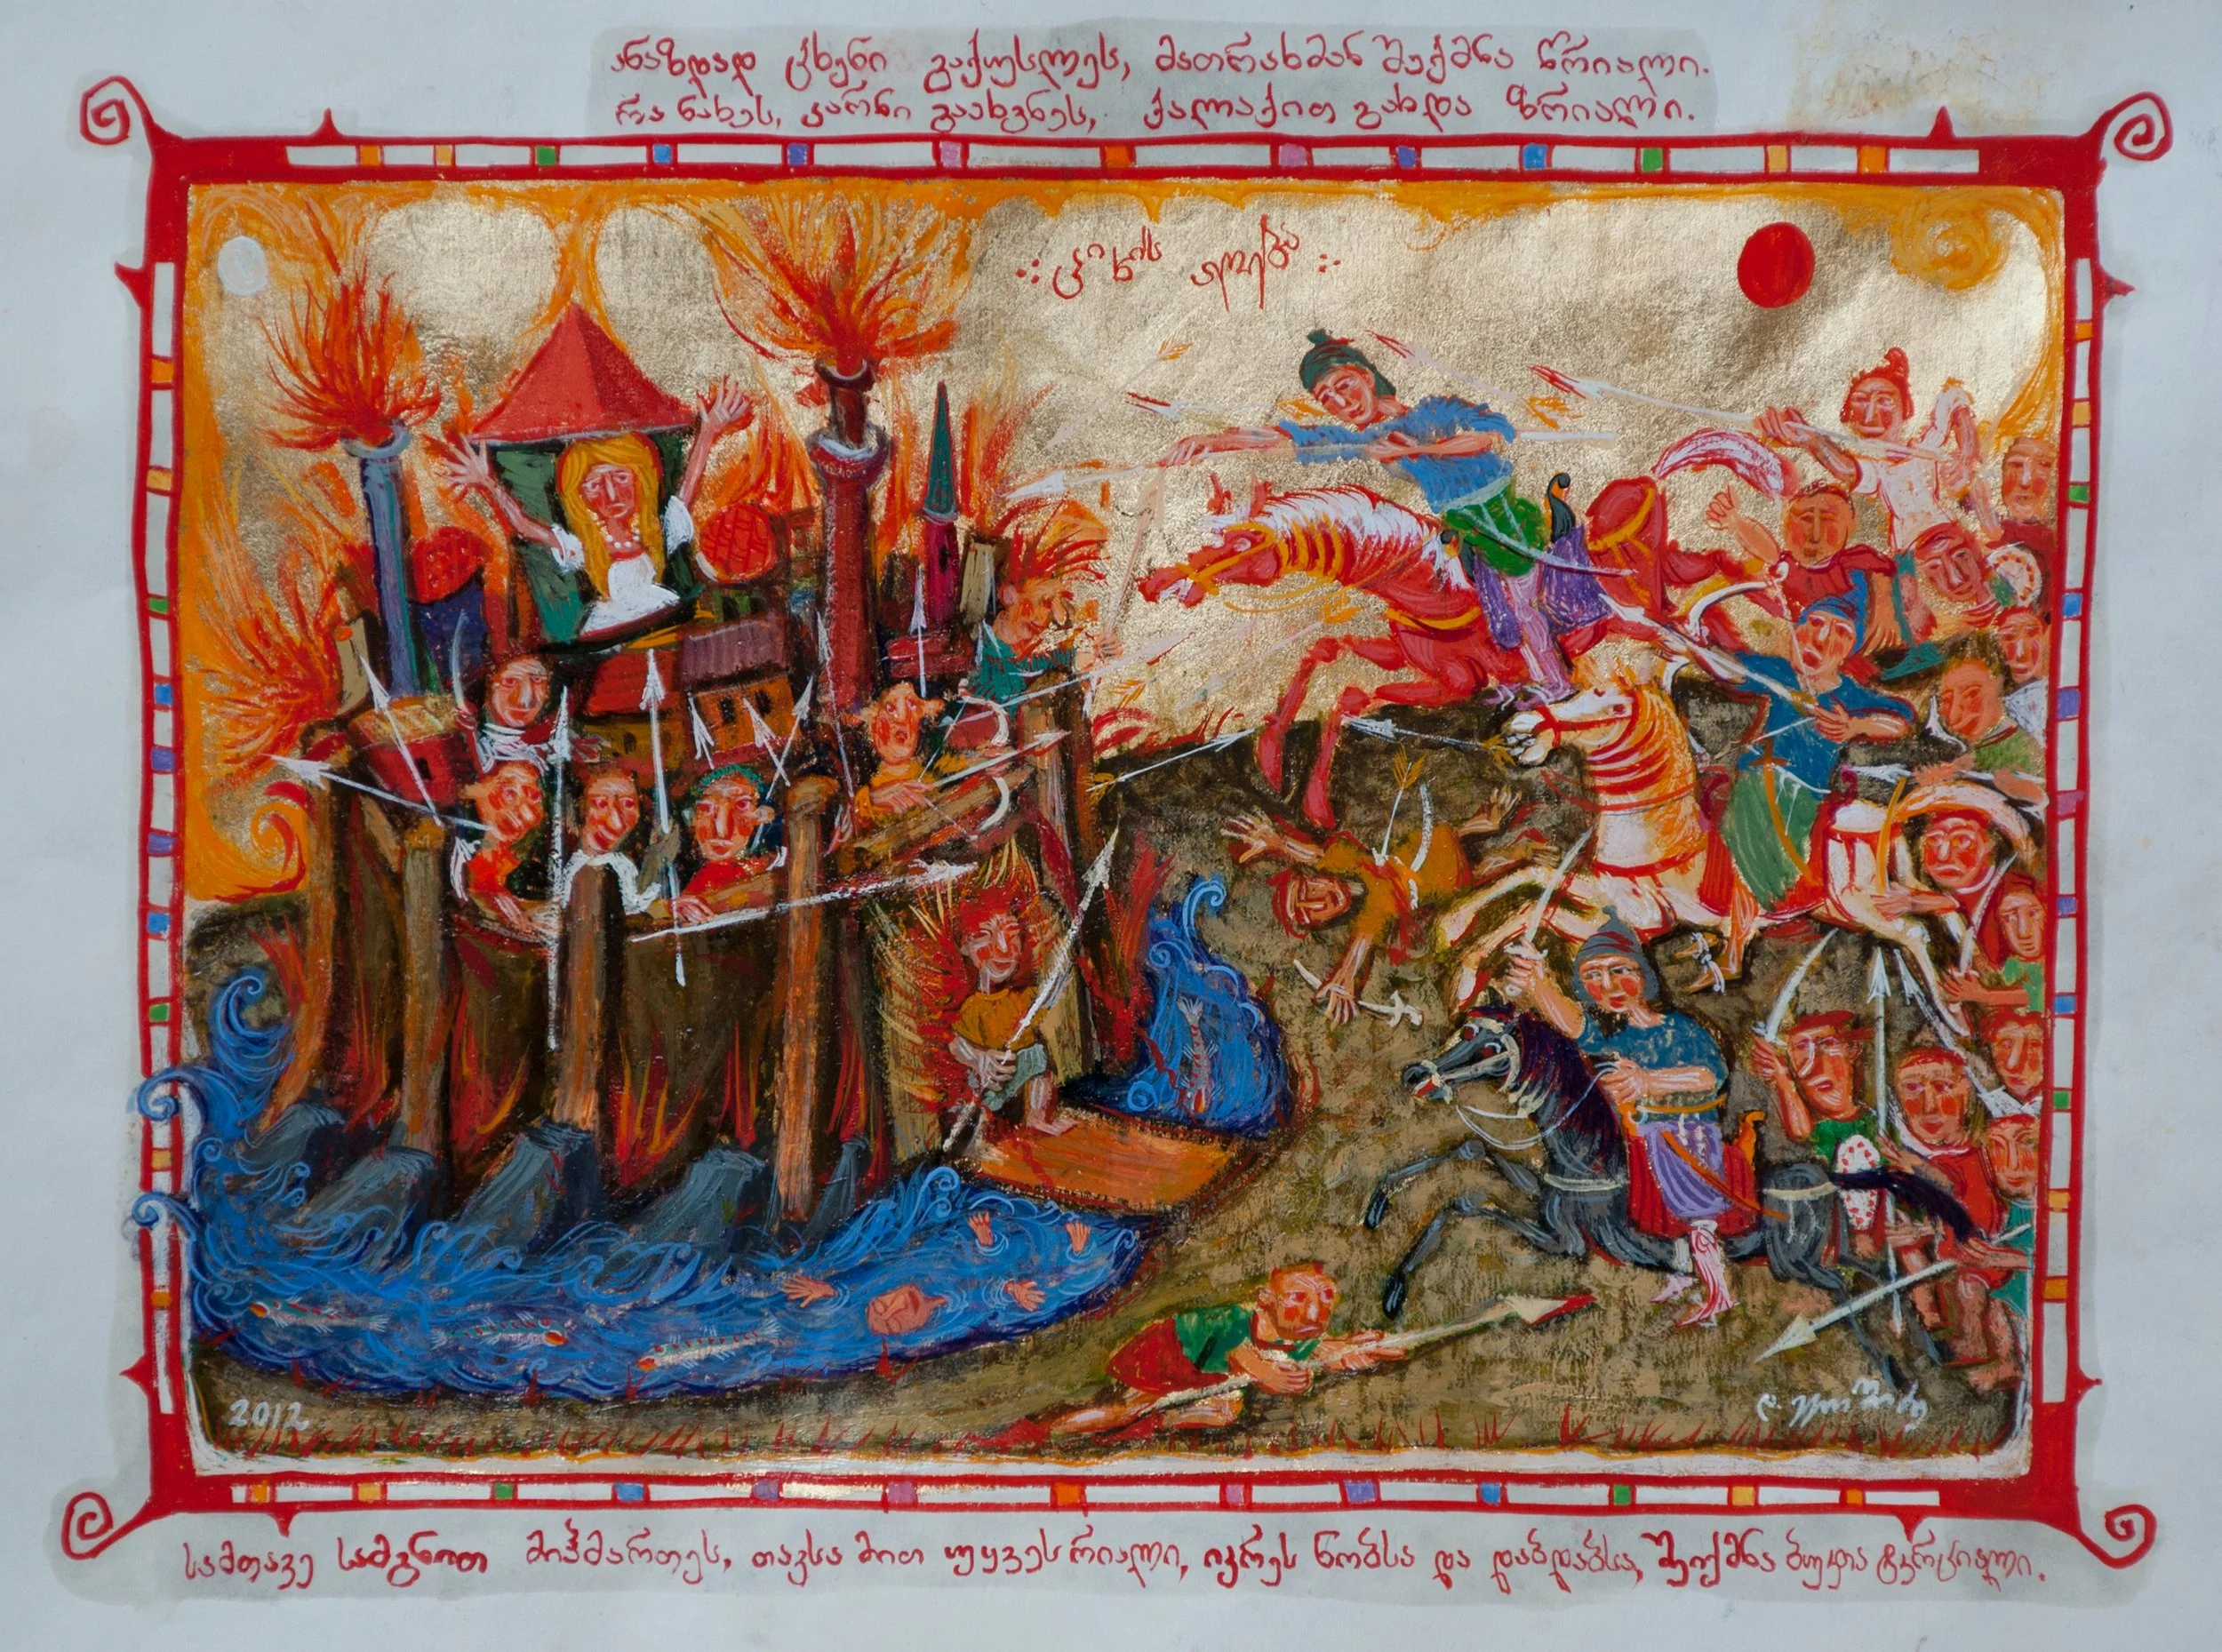 ანაზდად ცხენი გაქუსლეს, მათრახმან შექმნა წრიალი.
რა ნახეს, კარნი გაახვნეს, ქალაქით გახდა ზრიალი.
ციხის აღება
2012
სამთავე სამგნით მიჰმართეს, თავსა მით უყვეს რიალი, იკრეს ნობსა და დაბდაბსა, შეიქმნა ბუკთა ტკრციალი.